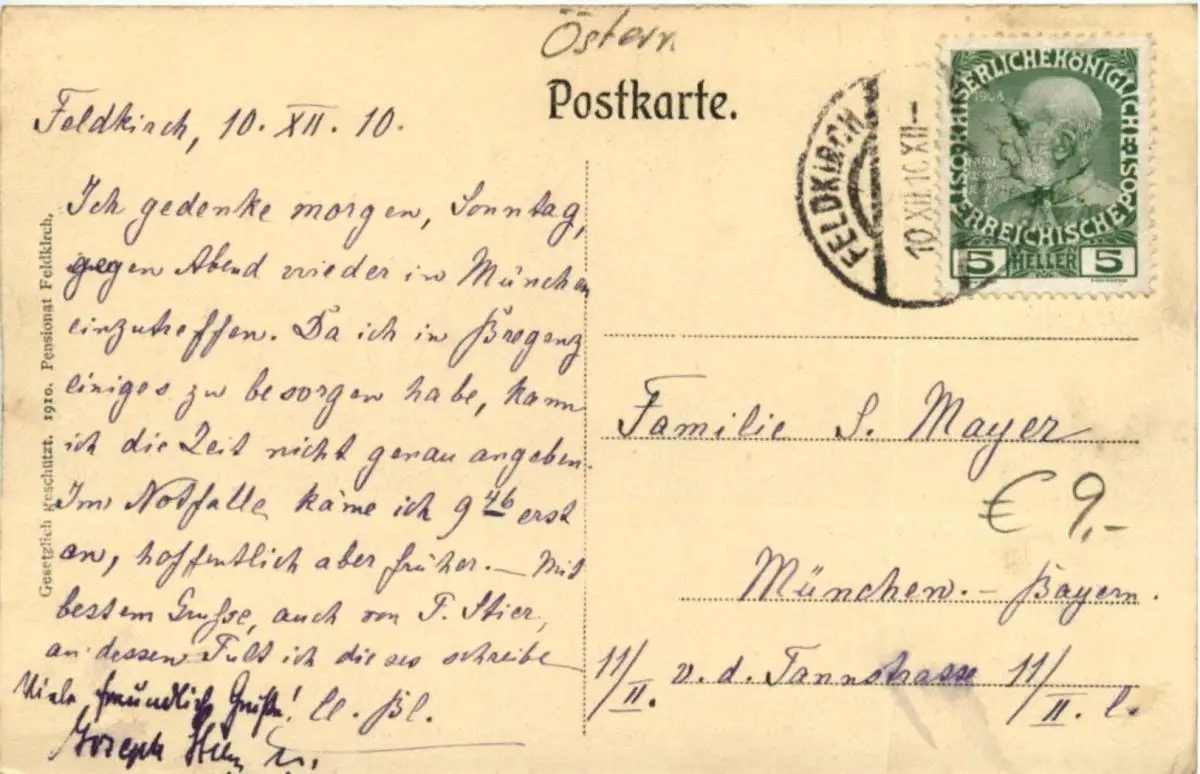 Östern
Postkarte.
Feldkirch, 10. XII. 10.
Ich gedenke morgen, Sonntag,
gegen Abend wieder in München
einzutreffen. Da ich in Bregenz
einiges zu besorgen habe, kann
ich die Zeit nicht genau angeben.
Im Notfalle käme ich 9 46 erst
an, hoffentlich aber früher. – Mit
bestem Grusse, auch von P. Stier,
an dessen Pult ich dieses schreibe
Viele freundlich Grüße! Bl.
Joseph
Gesetzlich geschützt. 1910. Pensionat Feldkirch.
FELDKIRCH
10 XII 10 XII-
KAISERLICHE KÖNIGLICHE ÖSTERREICHISCHE POST
1908
5 HELLER 5
Familie S. Mayer
€ 9,-
München. – Bayern.
11/II. v. d. Tannstrasse 11/II. l.